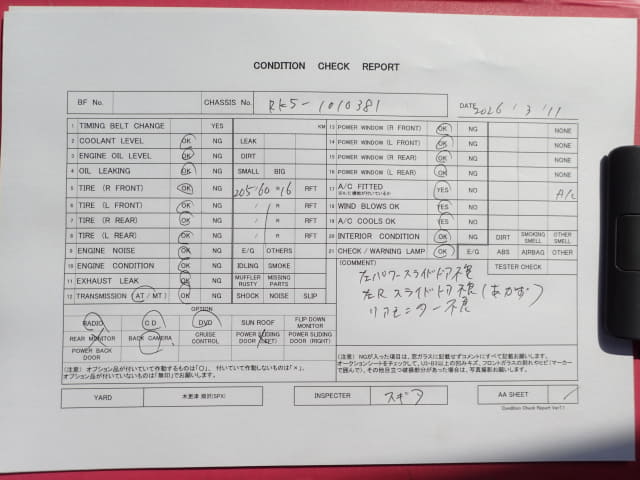 CONDITION CHECK REPORT
BF No. CHASSIS No. RK5-1010381 DATE 2026 '3 '11
1 TIMING BELT CHANGE YES KM
2 COOLANT LEVEL OK NG LEAK
3 ENGINE OIL LEVEL OK NG DIRT
4 OIL LEAKING OK NG SMALL BIG
5 TIRE (R FRONT) OK NG 205/60 R16 RFT
6 TIRE (L FRONT) OK NG / / R RFT
7 TIRE (R REAR) OK NG / / R RFT
8 TIRE (L REAR) OK NG / / R RFT
9 ENGINE NOISE OK NG E/G OTHERS
10 ENGINE CONDITION OK NG IDLING SMOKE
11 EXHAUST LEAK OK NG MUFFLER RUSTY MISSING PARTS
12 TRANSMISSION (AT/MT) OK NG SHOCK NOISE SLIP
OPTION
RADIO CD DVD SUN ROOF FLIP DOWN MONITOR
REAR MONITOR BACK CAMERA CRUISE CONTROL POWER SLIDING DOOR (LEFT) POWER SLIDING DOOR (RIGHT)
POWER BACK DOOR
(注意) オプション品が付いていて作動するものは「○」、付いていて作動しないものは「×」、
オプション品が付いていないものは「無印」でお願いします。
13 POWER WINDOW (R FRONT) OK NG NONE
14 POWER WINDOW (L FRONT) OK NG NONE
15 POWER WINDOW (R REAR) OK NG NONE
16 POWER WINDOW (L REAR) OK NG NONE
17 A/C FITTED YES NO A/C
18 WIND BLOWS OK YES NO
19 A/C COOLS OK YES NO
20 INTERIOR CONDITION OK NG DIRT SMOKING SMELL OTHER SMELL
21 CHECK/WARNING LAMP OK E/G ABS AIRBAG OTHER
(COMMENT) TESTER CHECK
左パワースライドドア不良
左R スライドドア不良(あかず)
リアモニター不良
(注意) NGが入った場所は、窓ガラスに記載せずコメントにすべて記載お願いします。
オークションシートをチェックして、U3・B3以上の凹みキズ、フロントガラスの割れやヒビ(マーカー
で囲んで)、その他目立つ破損部分があった場合は、写真撮影お願いします。
YARD 木更津 相沢(SPX) INSPECTER スギタ AA SHEET
Condition Check Report Ver11